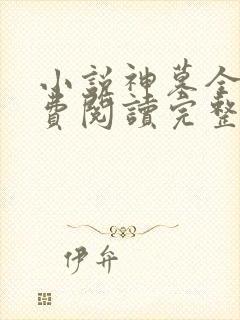 小說神墓全
費閱讀完整
伊弁